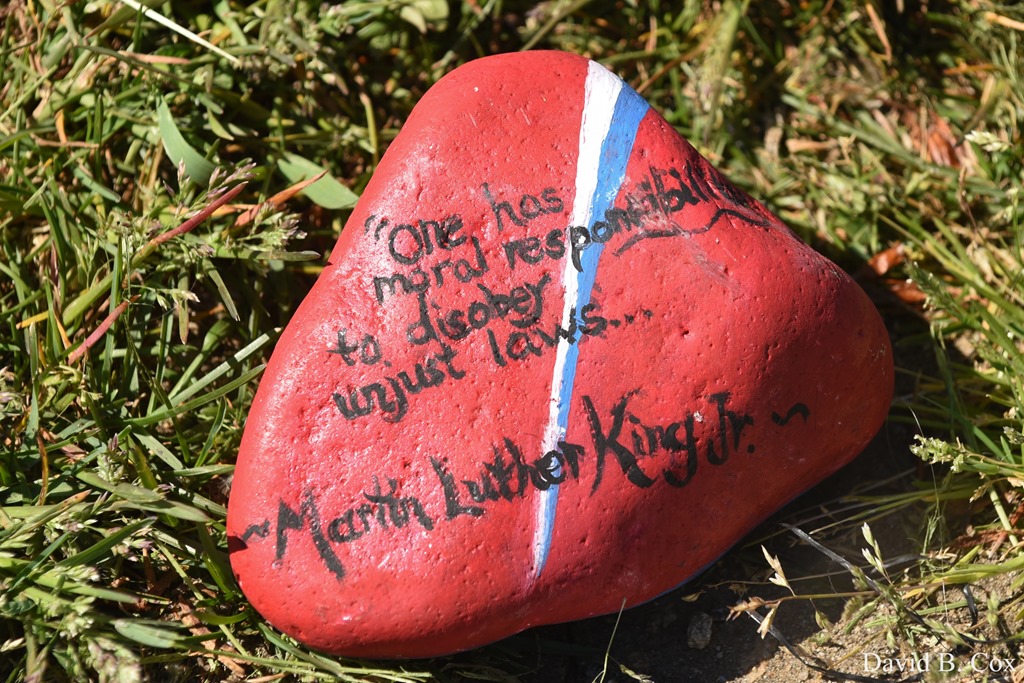 "One has
moral responsibility
to disobey
unjust laws...
~Martin Luther King Jr.~
David B. Cox